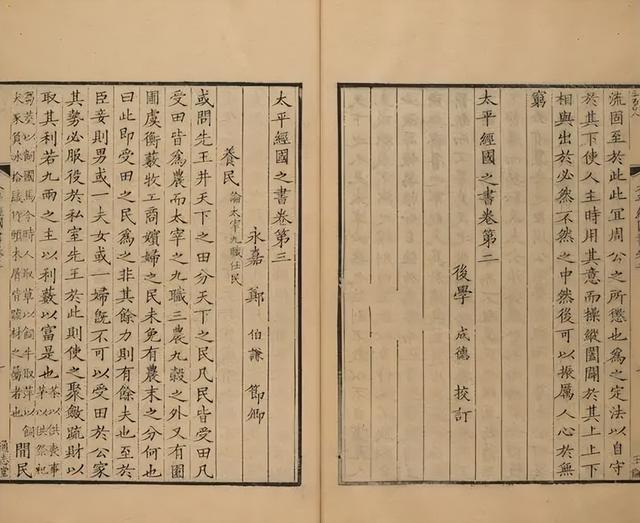 流固至於此此宜周公之所懲也爲之定法以自守
於其下使人主時用其意而操縱闔闢於其上上下
相與出於必然不然之中然後可以振厲人心於無
窮
太平經國之書卷第二
後學 成德 校訂
太平經國之書卷第三
永嘉 鄭 伯謙 節卿
養民 論太宰九職任民
或問先王井天下之田分天下之民凡民皆受田凡
受田皆爲農而太宰之九職三農九穀之外又有園
圃虞衡藪牧工商嬪婦之民未免有農末之分何也
曰此即受田之民爲之非其餘力則有餘夫也至於
臣妾則男或一夫女或一婦旣不可以受田於公家
其勢必服役於私室先王於此則使之聚斂疏財以
取其利若九兩之主以利藪以富是也 茶以供喪事茅以供祭祀
芻茭以飼國馬今時人取草以飼牛取萍以飼犬豕負冰拾 疏材之 者也 閒民
通志堂